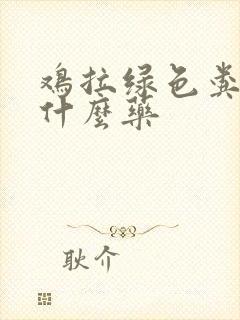 鸡拉绿色粪
什麼藥
耿介